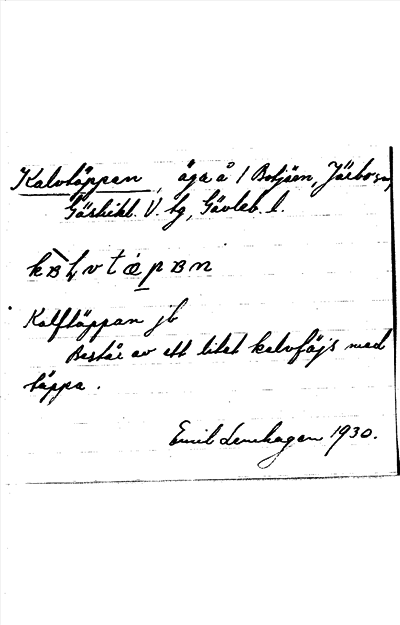 Kalvtäppan, äga å 1 Botjärn, Järbo sn,
Gästrikl. V. tg, Gävleb. l.
Kalftäppan jb
Består av ett litet kalvföjs med
täppa.
Emil Lenhagen 1930.